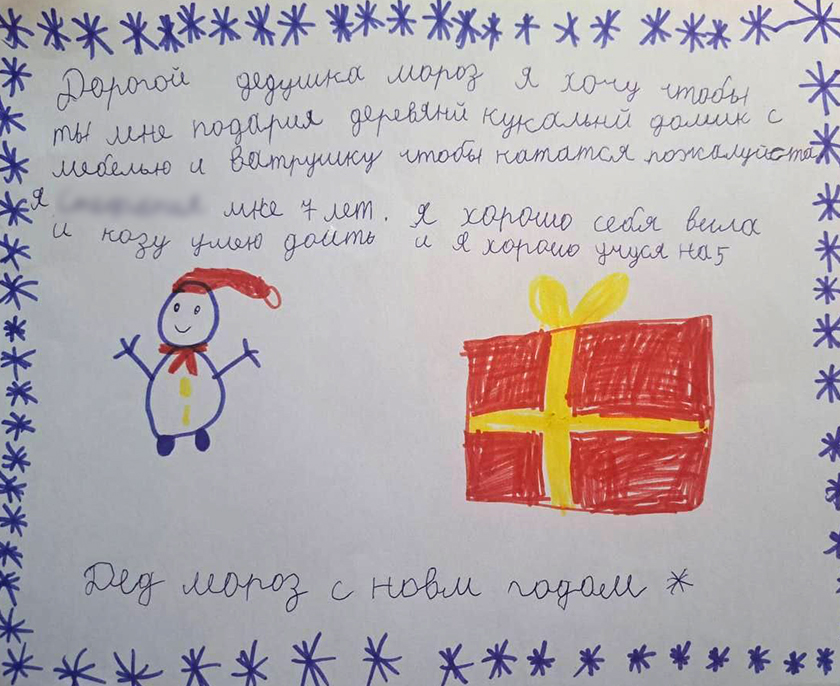 Дорогой дедушка мороз я хочу чтобы
ты мне подария деревянй кукальнй домик с
мебелью и ватрушку чтобы кататся пожалуйста
я мне 7 лет. я хорошо себя вила
и козу умею доить и я хорошо учуся на 5
Дед мороз с новм годом